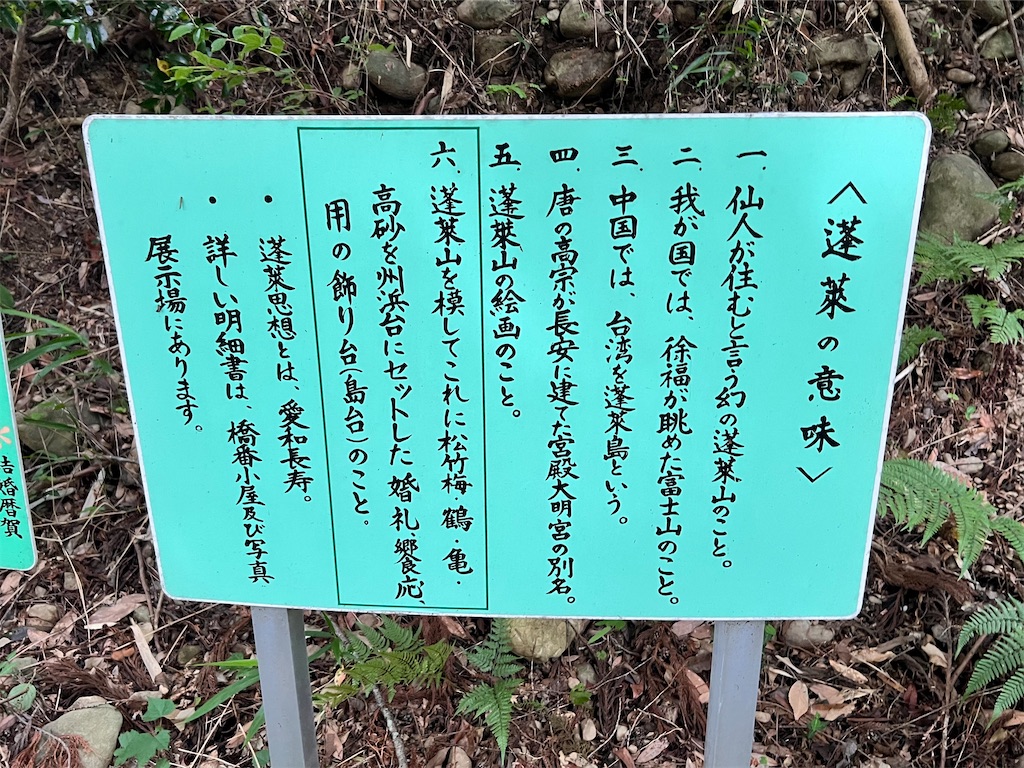 〈蓬萊の意味〉
一、仙人が住むと言う幻の蓬萊山のこと。
二、我が国では、徐福が眺めた富士山のこと。
三、中国では、台湾を蓬萊島という。
四、唐の高宗が長安に建てた宮殿大明宮の別名。
五、蓬萊山の絵画のこと。
六、蓬萊山を模してこれに松竹梅・鶴・亀・
高砂を州浜台にセットした婚礼、饗応、
用の飾り台(島台)のこと。
・蓬萊思想とは、愛和長寿。
・詳しい明細書は、橋番小屋及び写真
展示場にあります。
吉婚暦賀